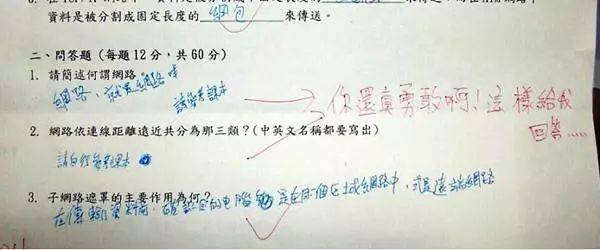 資料是被分割成固定長度的 網包 來傳送。
二、問答題(每題12分,共60分)
1. 請簡述何謂網路
網路、就是網路嘛
請參考課本
你還真勇敢啊!這樣給我
回答.....
2. 網路依連線距離遠近共分為那三類?(中英文名稱都要寫出)
請自行參考課本
3. 子網路遮罩的主要作用為何?
在傳輸資料前,確認目的电腦 是在同個区域網路中,或是遠端網路